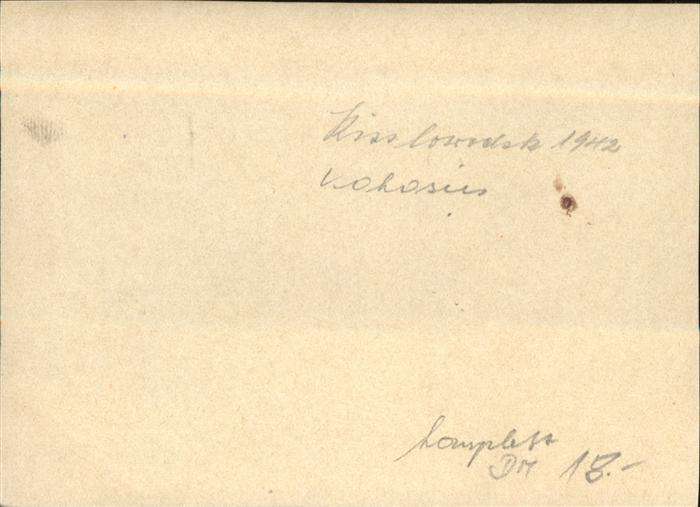 Kisslowodsk 1942
Kokosius
komplett
DM 18.-